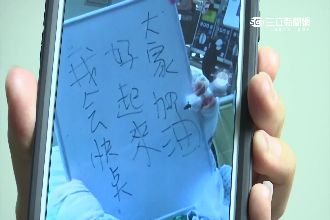 我会快点
好起來
大家加油
三立新聞網